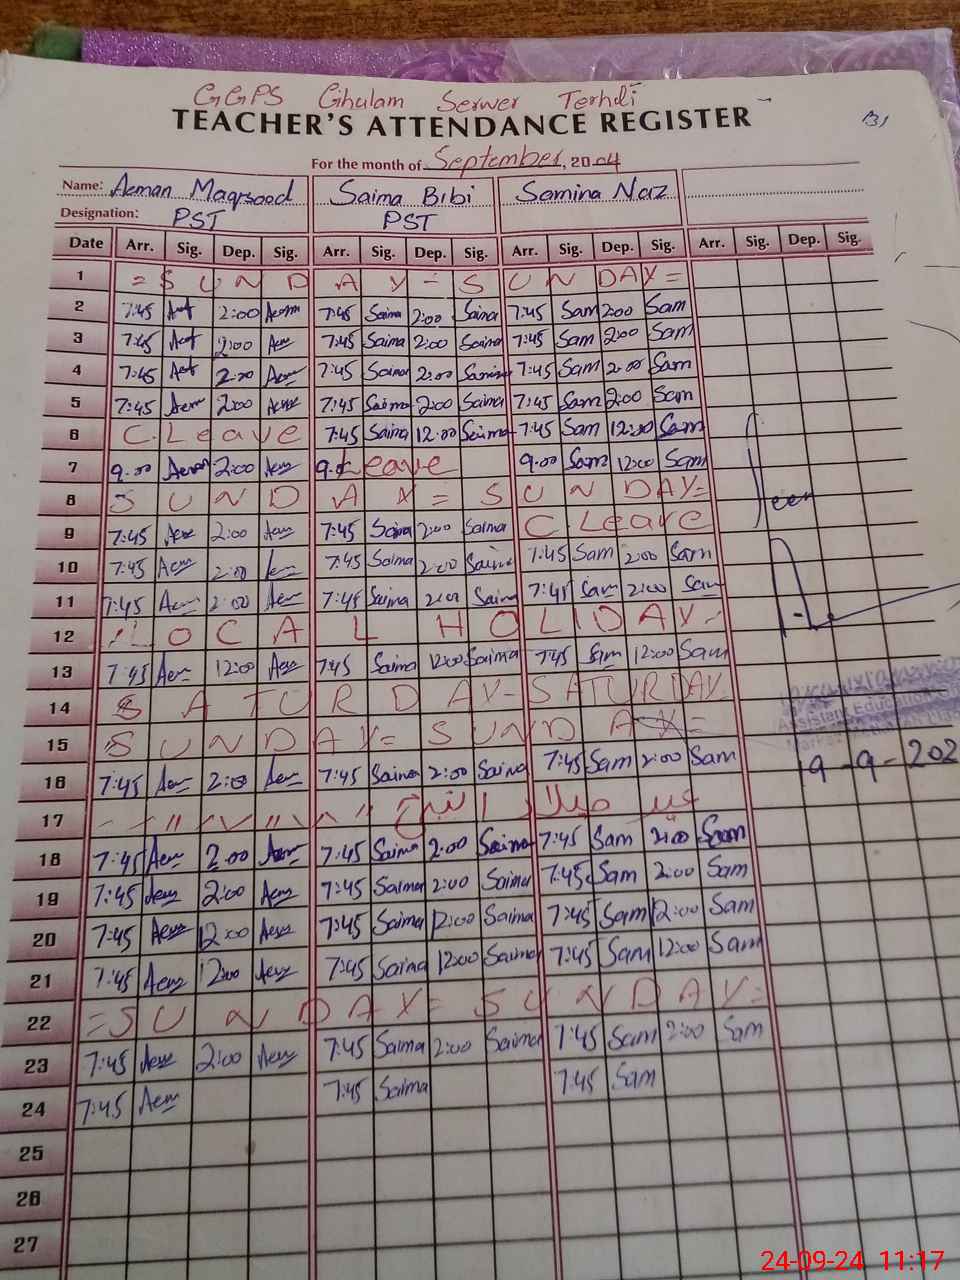 GGPS Ghulam Serwer Terhdi
TEACHER'S ATTENDANCE REGISTER
For the month of September, 2004
Name: Aeman Maqsood Saima Bibi Samina Naz
Designation: PST PST
Date Arr. Sig. Dep. Sig. Arr. Sig. Dep. Sig. Arr. Sig. Dep. Sig. Arr. Sig. Dep. Sig.
1 = S U N D A Y = S U N D A Y =
2 7:45 2:00 7:45 Saima 2:00 Saima 7:45 Sam 2:00 Sam
3 7:45 2:00 Aem 7:45 Saima 2:00 Saima 7:45 Sam 2:00 Sam
4 7:45 2:00 Aem 7:45 Saima 2:00 Saima 7:45 Sam 2:00 Sam
5 7:45 Aem 2:00 7:45 Saima 2:00 Saima 7:45 Sam 2:00 Sam
6 C. Leave 7:45 Saima 12:00 Saima 7:45 Sam 12:00 Sam
7 9:00 Aem 2:00 Aem Leave 9:00 Sam 12:00 Sam
8 S U N D A Y = S U N D A Y =
9 7:45 Aem 2:00 Aem 7:45 Saima 2:00 Saima C. Leave
10 7:45 Aem 2:00 7:45 Saima 2:00 Saima 7:45 Sam 2:00 Sam
11 7:45 Aem 2:00 Aem 7:45 Saima 2:00 Saima 7:45 Sam 2:00 Sam
12 L O C A L H O L I D A Y -
13 7:45 Aem 12:00 Aem 7:45 Saima 12:00 Saima 7:45 Sam 12:00 Sam
14 S A T U R D A Y - S A T U R D A Y
15 S U N D A Y = S U N D A Y =
Assistant Education
16 7:45 Aem 2:00 Aem 7:45 Saima 2:00 Saima 7:45 Sam 2:00 Sam
19-9-202
17 عید میلاد النبی
18 7:45 Aem 2:00 Aem 7:45 Saima 2:00 Saima 7:45 Sam 2:00 Sam
19 7:45 Aem 2:00 Aem 7:45 Saima 2:00 Saima 7:45 Sam 2:00 Sam
20 7:45 Aem 12:00 Aem 7:45 Saima 12:00 Saima 7:45 Sam 12:00 Sam
21 7:45 Aem 12:00 Aem 7:45 Saima 12:00 Saima 7:45 Sam 12:00 Sam
22 = S U N D A Y = S U N D A Y =
23 7:45 Aem 2:00 Aem 7:45 Saima 2:00 Saima 7:45 Sam 2:00 Sam
24 7:45 Aem 7:45 Saima 7:45 Sam
25
26
27
24-09-24 11:17